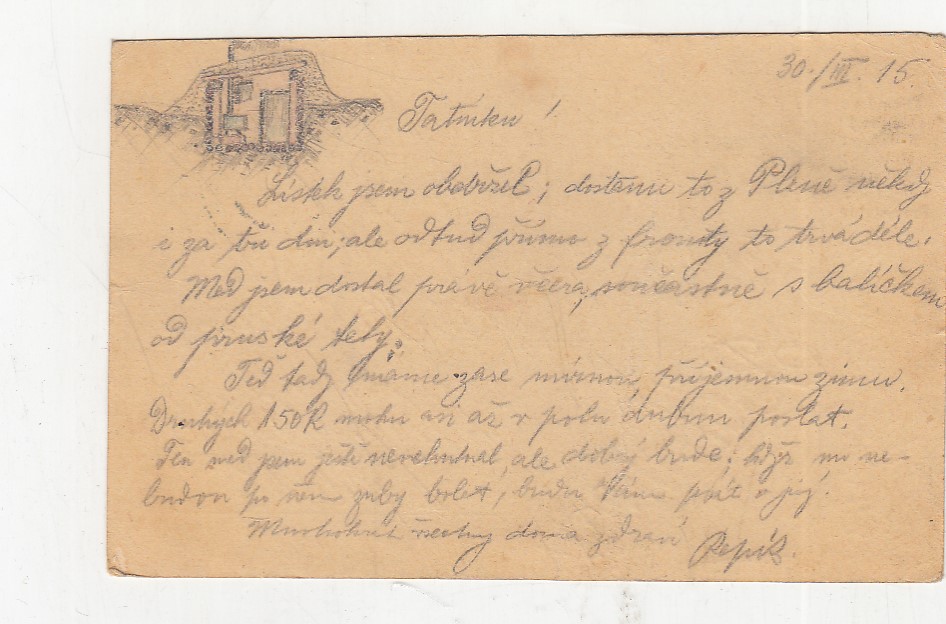 30./III. 15.
Tatínku!
Lístek jsem obdržel; dostanu to z Plzně někdy
i za tři dni; ale odtud přímo z fronty to trvá déle.
Med jsem dostal právě včera, současně s balíčkem
od pruské tety.
Teď tady máme zase mírnou, příjemnou zimu.
Druhých 150K mohu asi až v polu dubnu poslat.
Ten med jsem ještě neochutnal, ale dobrý bude; když mi ne-
budou po něm zuby bolet, budu Vám psát o jiný.
Mnohokrát všechny doma zdraví
Pepík.